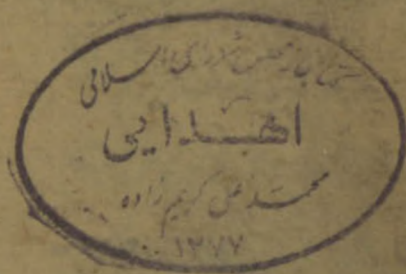 کتابخانه مجلس شورای اسلامی
اهدایی
محمدعلی کریم زاده
۱۲۷۷